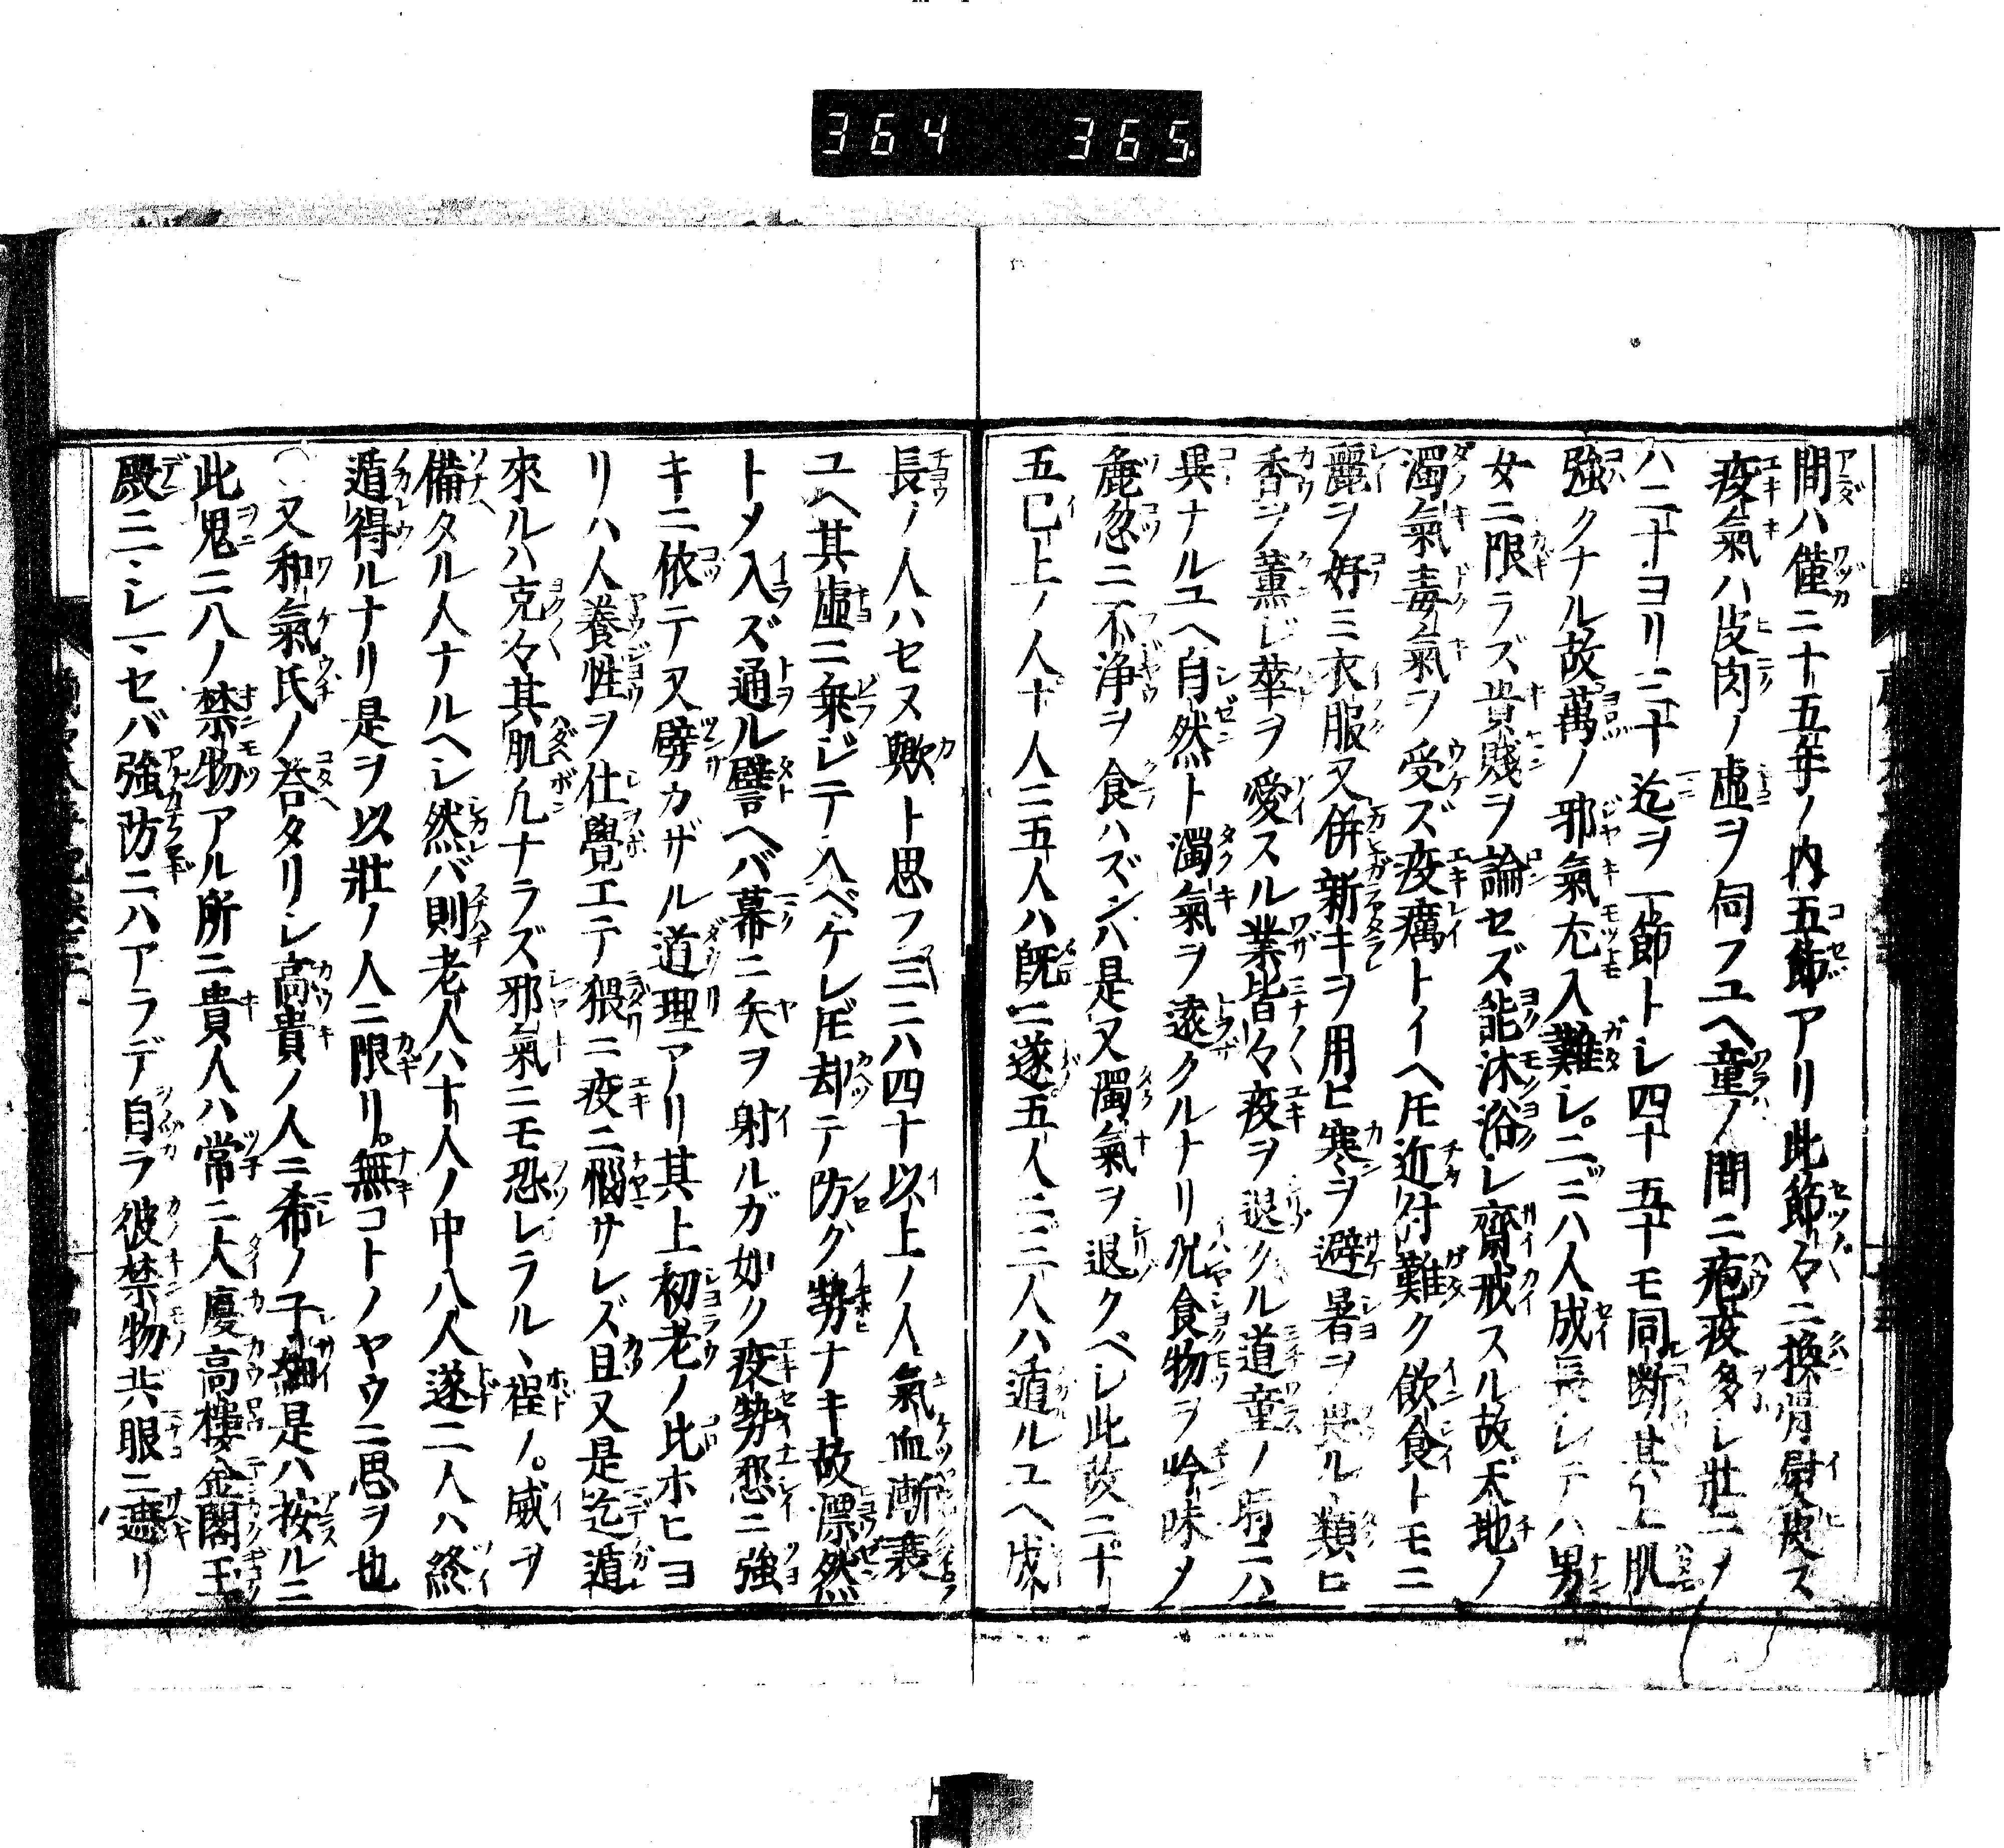 364 365
間ハ僅ニ二十五年ノ内五節アリ此節々ニ換骨慰皮ス
疫氣ハ皮肉ノ虚ヲ伺フユヘ童ノ間ニ疱疫多シ壯ニメ
ハ二十ヨリ三十迄ヲ一節トシ四十五十モ同断其上肌
強クナル故萬ノ邪氣尤入難シ。二ニハ人成長シテハ男
女ニ限ラズ貴賤ヲ論セズ能沐浴シ齋戒スル故天地ノ
濁氣毒氣ヲ受ズ疫癘トイヘ𪜈近付難ク飲食トモニ
麗ヲ好ミ衣服又併新キヲ用ヒ寒ヲ避暑ヲ畏ル類ヒ
香ヲ薫ジ華ヲ愛スル業皆々疫ヲ退クル道童ノ時ニハ
異ナルユヘ自然ト濁氣ヲ遠クルナリ況食物ヲ吟味メ
麁忽ニ不浄ヲ食ハズンハ是又濁氣ヲ退クベシ此故ニ十
五已上ノ人十人ニ五人ハ既ニ遂五人ニ三人ハ遁ルユヘ成
長ノ人ハセヌ歟ト思フ三ニハ四十以上ノ人氣血漸衰
ユヘ其虚ニ乗ジテ入ベケレ𪜈却テ防グ勢ナキ故漂然
トメ入ズ通ル譬ヘバ幕ニ矢ヲ射ルガ如ク疫勢悉ニ強
キニ依テ又劈カザル道理アリ其上初老ノ比ホヒヨ
リハ人養性ヲ仕覺エテ猥ニ疫ニ悩サレズ且又是迄遁
來ルハ克々其肌凡ナラズ邪氣ニモ恐レラルヽ程ノ。威ヲ
備タル人ナルヘシ然バ則老人ハ十人ノ中八人遂二人ハ終
遁得ルナリ是ヲ以壯ノ人ニ限リ。無コトノヤウニ思ヲ也
又和氣氏ノ荅タリシ高貴ノ人ニ希ノ子細是ハ按ルニ
此鬼ニ八ノ禁物アル所ニ貴人ハ常ニ大廈高樓金閣玉
殿ニ、シ一、セバ強防ニハアラデ自ラ彼禁物共眼ニ遮リ